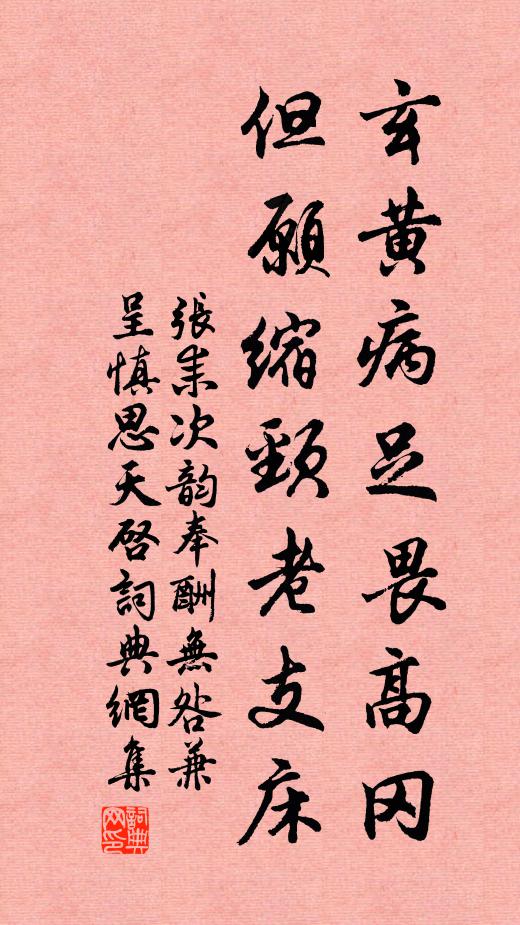 玄黃病足畏高岡
但願縮頸老支床
張耒次韵奉酬無咎兼
呈慎思天啓詞典網集
詞典网印